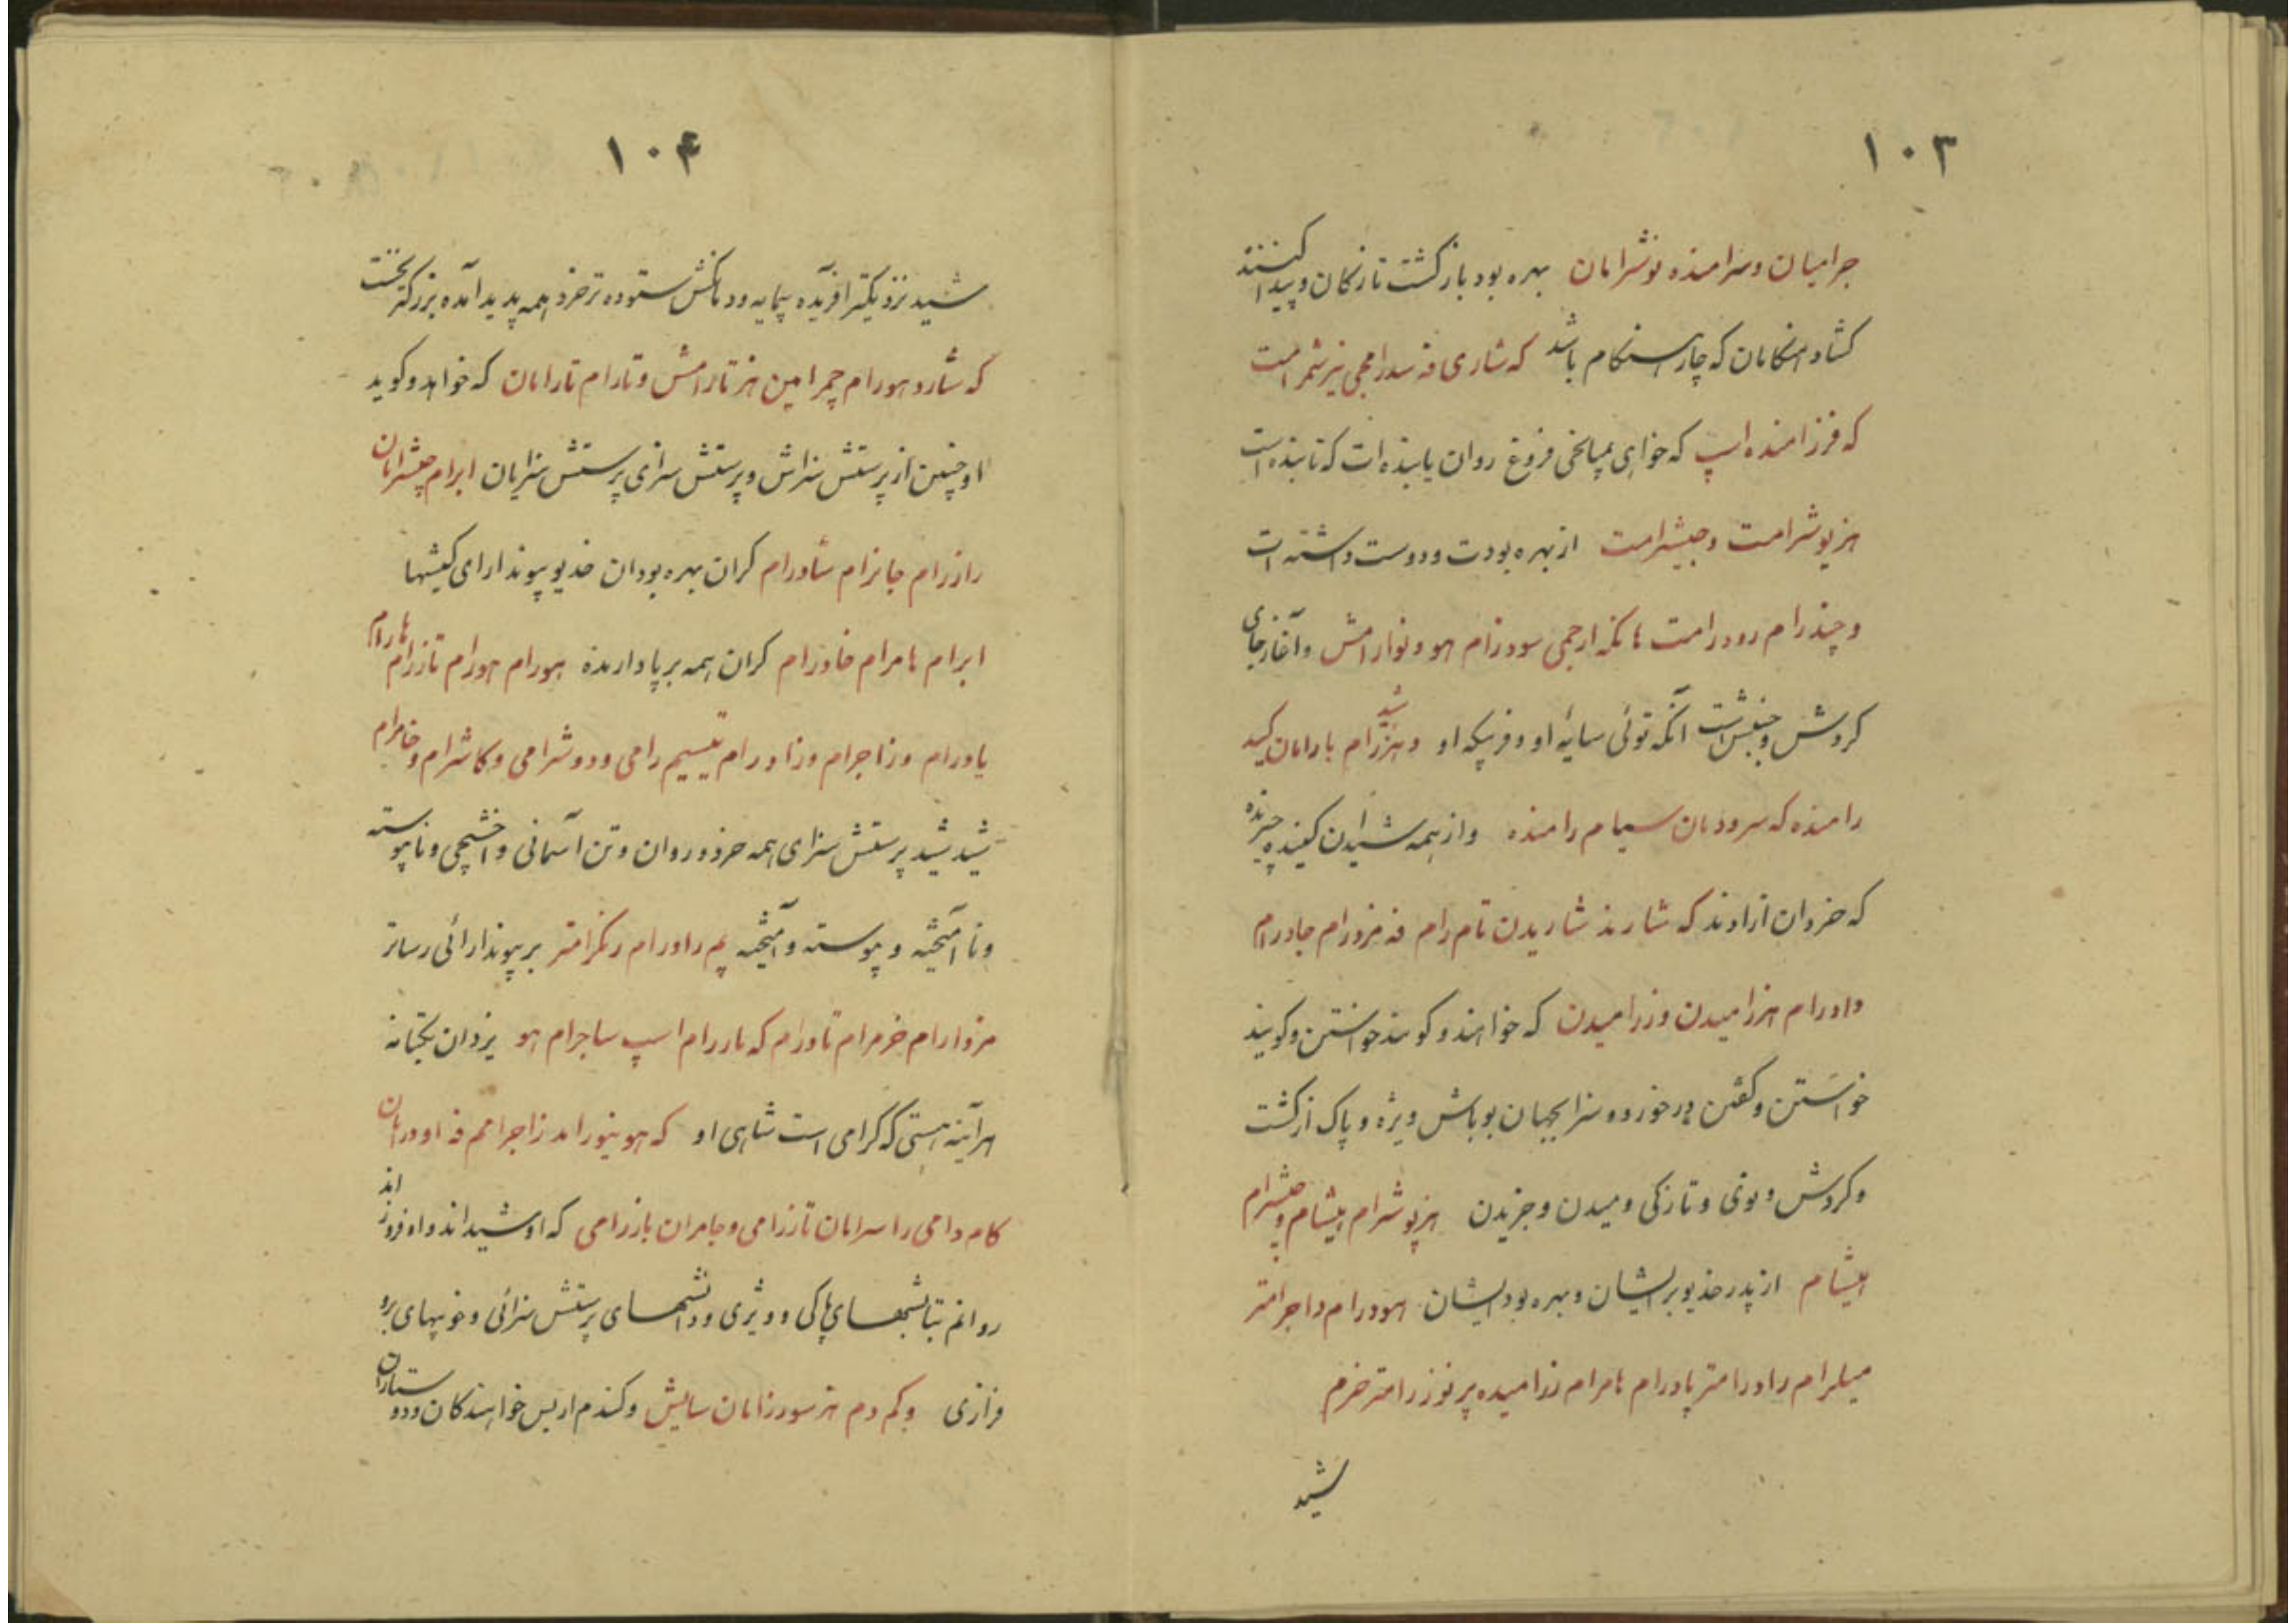 ۱۰۳
جرامیان و سرامنده نوشرامان بهره بود بازکشت تازکان و پیدا کنند
کشاد هنکامان که چار هنکام باشد که شاری فه سدرامجی نیرشمرامت
که فرزامنده اسپ که خواهی بمیانجی فروغ روان یابنده ات که تابنده است
هزپوشرامت وجیشرامت از بهره بودت و دوست داشته ات
و چندرام رودرامت هانکه ارجمی سودرام هو و نوارامش و آغاز جای
کردش و جنبش است آنکه توئی سایه او و فرپیکه او و هزرام بارامان کید
رامنده که سرودمان سیام رامنده و از همه شیدان کیننده چیرنده
که خردان ازادند که شارند شاریدن تام رام فه فرورام جادرام
داورام هزرامیدن وزرامیدن که خواهند و کویند خواستن و کویند
خواستن و کفتن درخورده سزا بجهان بوباش ویژه و پاک از کشت
و کردش و بوی و تازکی و میدن و خریدن هزپوشرام هیشام و جیشرام
هیشام از پدر خدیو بر ایشان و بهره بود ایشان هودرام داجرامتر
میلرام راورامتر پادرام هامرام زرامیده پرنوزرامتر خرم
شید
۱۰۴
شید نزدیکتر افریده بیمایه و دمانش ستوده تر خرد همه پدید آمده بزرکتر نخست
که شارد هورام چمرامین هز تارامش و تارام تارامان که خواهد و کوید
او چنین از پرستش سزاش و پرستش سزای پرستش سزایان ابرام جیشرامان
رازرام جانرام شاورام کران بهره بودان خدیو پیوند ارای کیشها
ابرام هامرام خاورام کران همه برپا دارنده هورام هورام تازرام هارام
یاورام وزاجرام وزاورام تیسیم رامی و دوشرامی و کاشرام و خامرام
شید شید پرستش سزای همه خرد و روان و تن آسمانی و اخشیجی و ناپیوسته
و نا آمیخته و پیوسته و آمیخته پم راورام رنکرامتر بر پیوند ارائی رساتر
مزدارام خرمرام تاورام که باررام اسپ ساجرام هو یزدان یکتانه
هرآینه هستی که کرامی است شاهی او که هو نیورامد زاجرامم فه اوورامان
کام دامی راسرامان تازرامی وجامران بازرامی که او شید اند و او فروزاند
روانم بتابشهای پاکی و ویژی و دانشهای پرستش سزائی و خوبیهای برو
فرازی و کم دم هز سورزامان سایش و کندم از بس خواهندکان و دوستاران